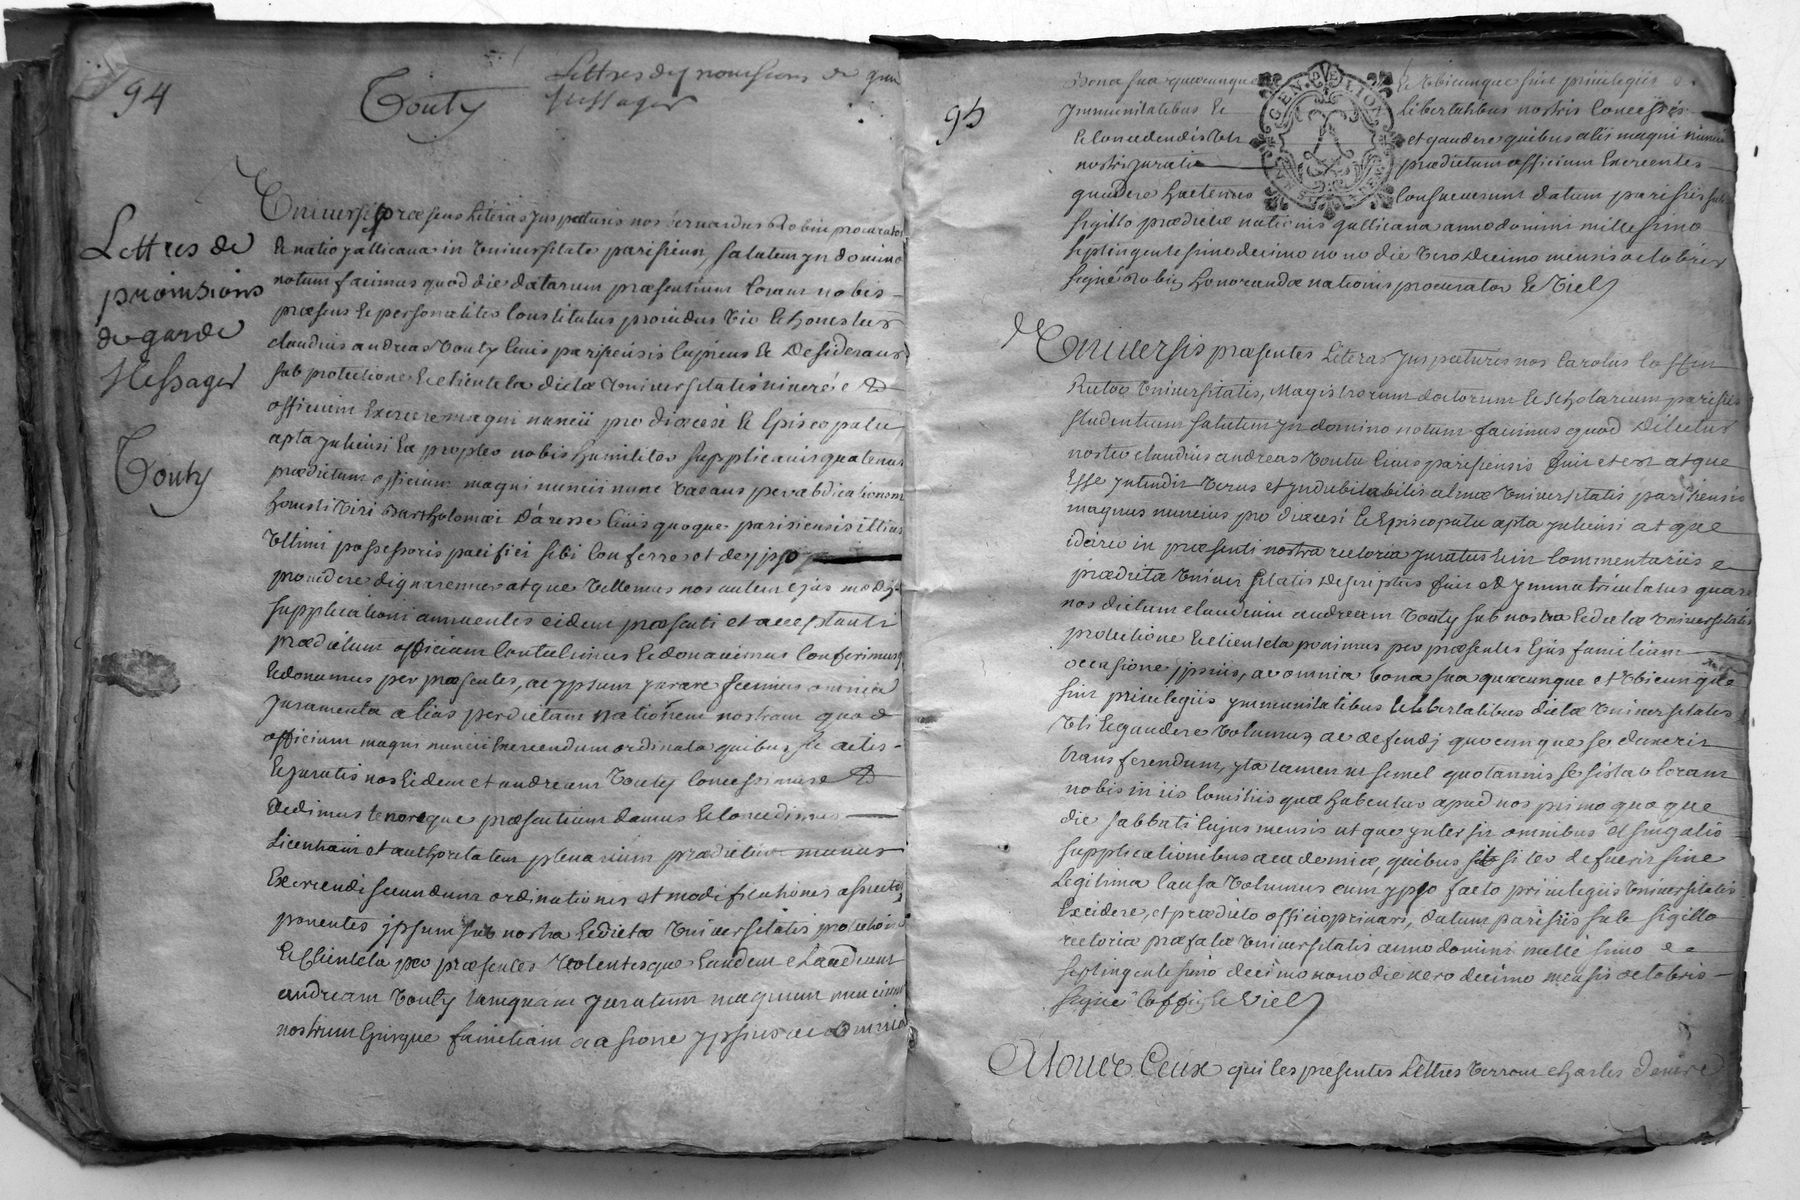 94
Touty
Lettres de provisions de gran
Messager
Lettres de
provisions
de garde
Messager
Touty
Universis præsens Literas Inspecturis nos bernardus Robin procurator
& natio gallicana in Universitate parisiensi, salutem In domino
notum facimus quod die datarum præsentium Coram nobis
præsens & personaliter Constitutus providus Vir & honestus
claudius andreas Touty Civis parisiensis Cupiens & Desiderans
sub protectione & clientela dictæ Universitatis vivere &
officium Exercere magni nuncii pro diœcesi & Episcopatu
apta Juliensi Ea propter nobis humiliter supplicavit quatenus
prædictum officium magni nuncii nunc Vacans per abdicationem
honesti Viri Bartholomæi Daresse Civis quoque parisiensis illius
Ultimi possessoris pacifici sibi Conferre et de ypso
providere dignaremur atque Vellemus nos autem ejus modi
supplicationi annuentes eidem præsenti et acceptanti
prædictum officium Contulimus & donavimus Conferimusq
& donamus per præsentes, ac ypsum jurare fecimus omnia
Juramenta alias per dictam nationem nostram quo d
officium magni nuncii Exercendum ordinata quibus sic actis
& juratis nos Eidem et andream Touty Concessimus &
Dedimus tenoreque præsentium damus & Concedimus
Licentiam et authoritatem plenarium prædictum munus
Exercendi secundum ordinationes et modificationes assuetas
ponentes ypsum sub nostra & dictæ Universitatis protectione
& Clientela per præsentes Volentesque Eumdem Claudium
andream Touty tanquam Juratum magnum nuncium
nostrum Ejusque familiam occasione ypsius ac omnia
95
GEN. DE LION
Bona sua quæcunque & Ubicunque sint privilegiis &
Immunitatibus & Libertatibus nostris Concessis
& Concedendis Uti et gaudere quibus alii magni nuncii
nostri jurati prædictum officium Exercentes
gaudere hactenus Consueverunt datum parisiis sub
sigillo prædictæ nationis gallicanæ anno domini millesimo
septingentesimo decimo nono die Vero Decimo mensis octobris
signé Robin honorandæ nationis procurator & Viel
Universis præsentes Literas Inspecturis nos Carolus Coffin
Rector Universitatis, Magistrorum doctorum & scholarium parisiis
studentium salutem In domino notum facimus quod Dilectus
noster claudius andreas Touty Civis parisiensis fuit et est atque
Esse Intendit Verus et Indubitabilis almæ Universitatis parisiensis
magnus nuncius pro diœcesi & Episcopatu apta Juliensi atque
idcirco in præsenti nostra rectoria Juratus & in Commentariis
prædictæ Universitatis Descriptus fuit & Immatriculatus quare
nos dictum claudium andream Touty sub nostra & dictæ Universitatis
protectione & clientela ponimus per præsentes Ejus familiam
occasione ypsius, ac omnia bona sua quæcunque et Ubicunque
sint privilegiis ymmunitatibus & Libertatibus dictæ Universitatis
Uti & gaudere Volumus, ac defendj quocunque se duxerit
transferendum, yta tamen ut semel quotannis se sistat Coram
nobis in iis Comitiis quæ habentur apud nos primo quoque
die sabbati Cujus mensis atque ynter sit omnibus et singulis
supplicationibus academiæ, quibus si ter defuerit sine
Legitima Causa Volumus eum ypso facto privilegiis Universitatis
Excidere, et prædicto officio privari, datum parisiis sub sigillo
rectoriæ præfatæ Universitatis anno domini millesimo
septingentesimo decimo nono die vero decimo mensis octobris
signé Coffin & Viel
A tous Ceux qui Ces présentes Lettres Verront charles Denis de